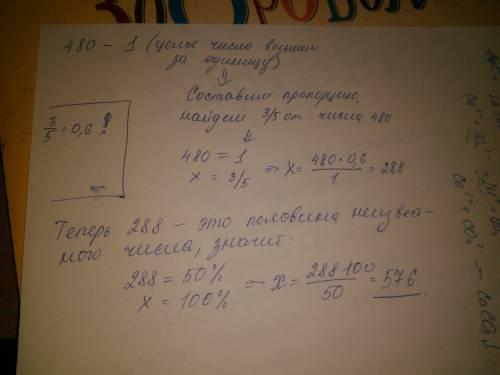 ЗДОРОВ
480 – 1 (целое число возьмем
за единицу)
⇓
Составим пропорцию,
найдем 3/5 от числа 480
⇓
3/5 = 0,6
480 = 1
x = 3/5 ⇒ x = 480·0,6 / 1 = 288
Теперь 288 – это половина неизвест-
ного числа, значит:
288 = 50%
x = 100% ⇒ x = 288·100 / 50 = 576.